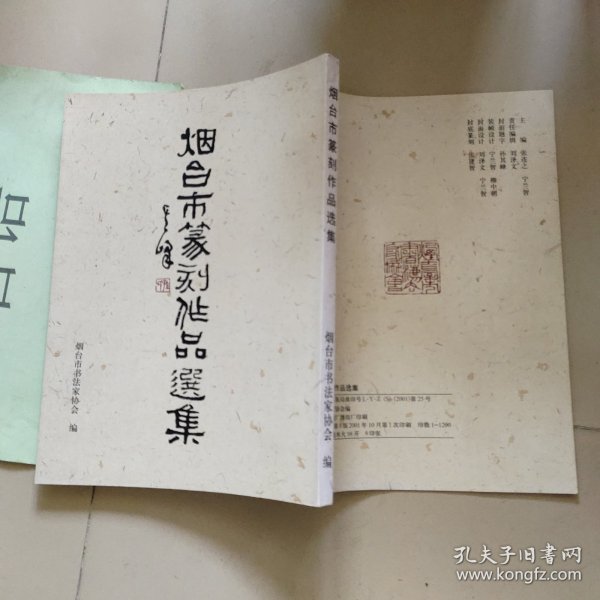 烟台市篆刻作品選集
烟台市书法家协会 编
烟台市篆刻作品选集
烟台市书法家协会 编
主 编 张连之 宁兰智
责任编辑 刘泽文
封面题字 孙其峰
装帧设计 宁兰智 柳中朝
封面设计 刘泽文 宁兰智
封底篆刻 张建智
作品选集
2001年10月第1次印刷 印数1-1200
孔夫子旧书网
www.kongfz.com